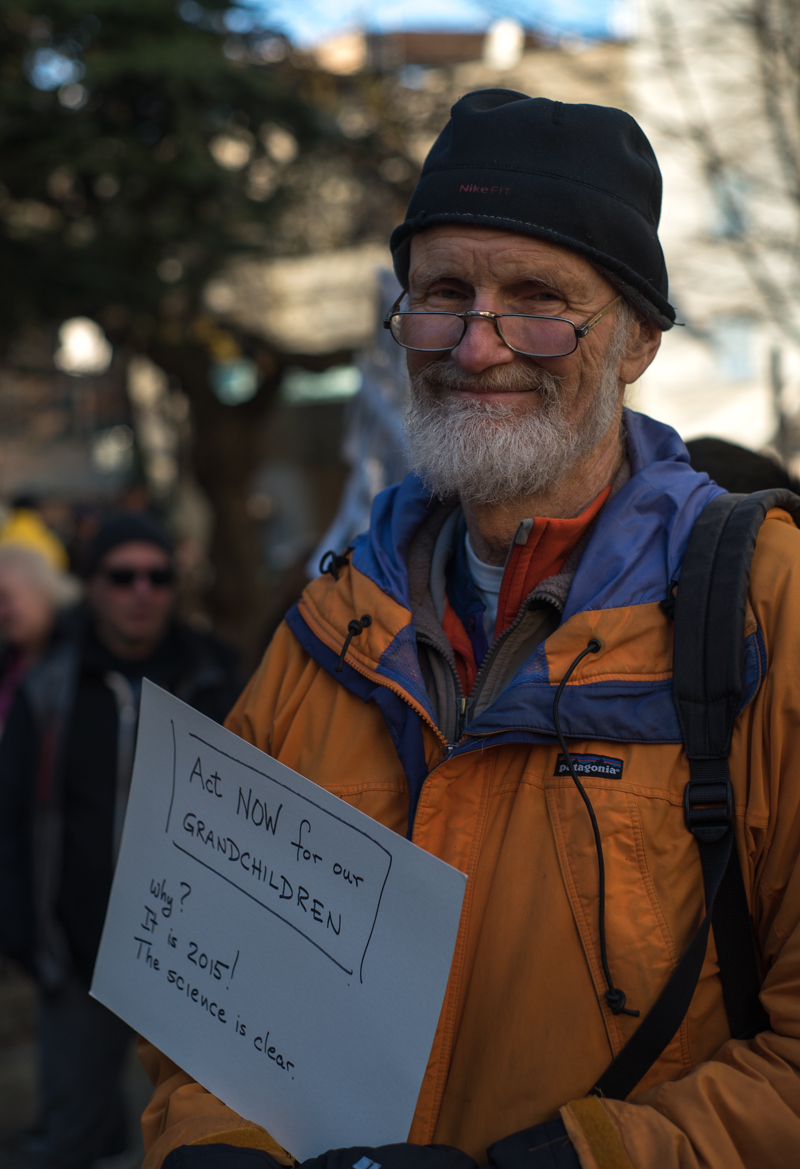 NikeFIT
patagonia
Act NOW for our
GRANDCHILDREN
why?
It is 2015!
The science is clear.